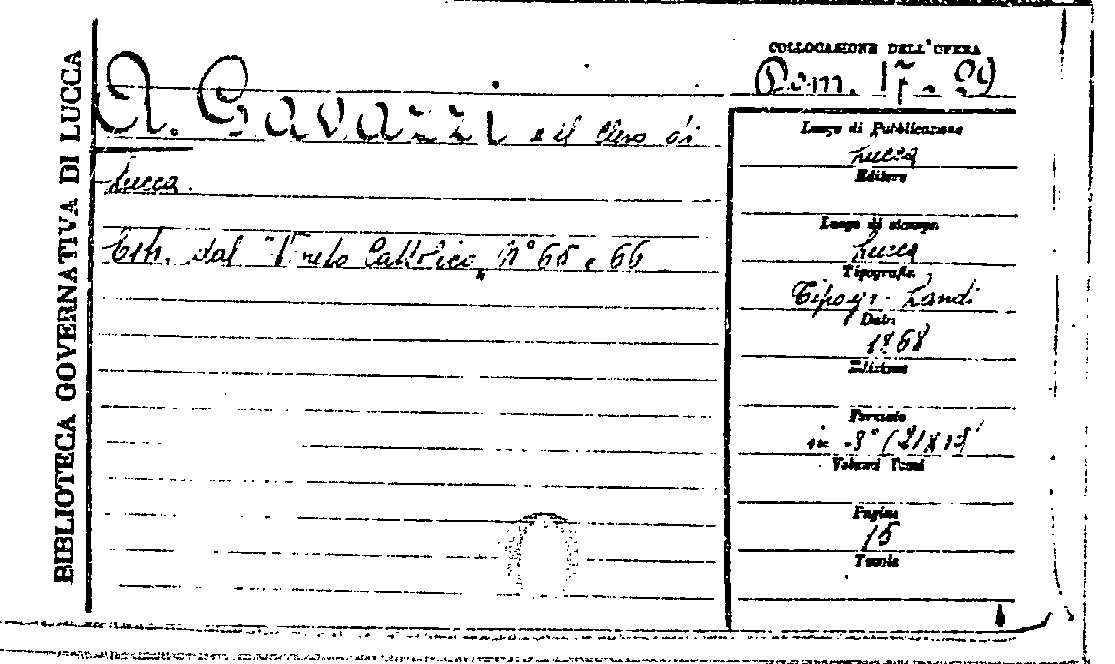 BIBLIOTECA GOVERNATIVA DI LUCCA
COLLOCAZIONE DELL'OPERA
17 - 29
A. Gavazzi e il Clero di
Lucca.
Estr. dal Cattolico, N° 65 e 66
Luogo di Pubblicazione
Lucca
Editore
Luogo di stampa
Lucca
Tipografia
Tipogr. Landi
Data
1868
Edizione
Formato
in -8° (21x13)
Volumi Tomi
Pagine
15
Tavole